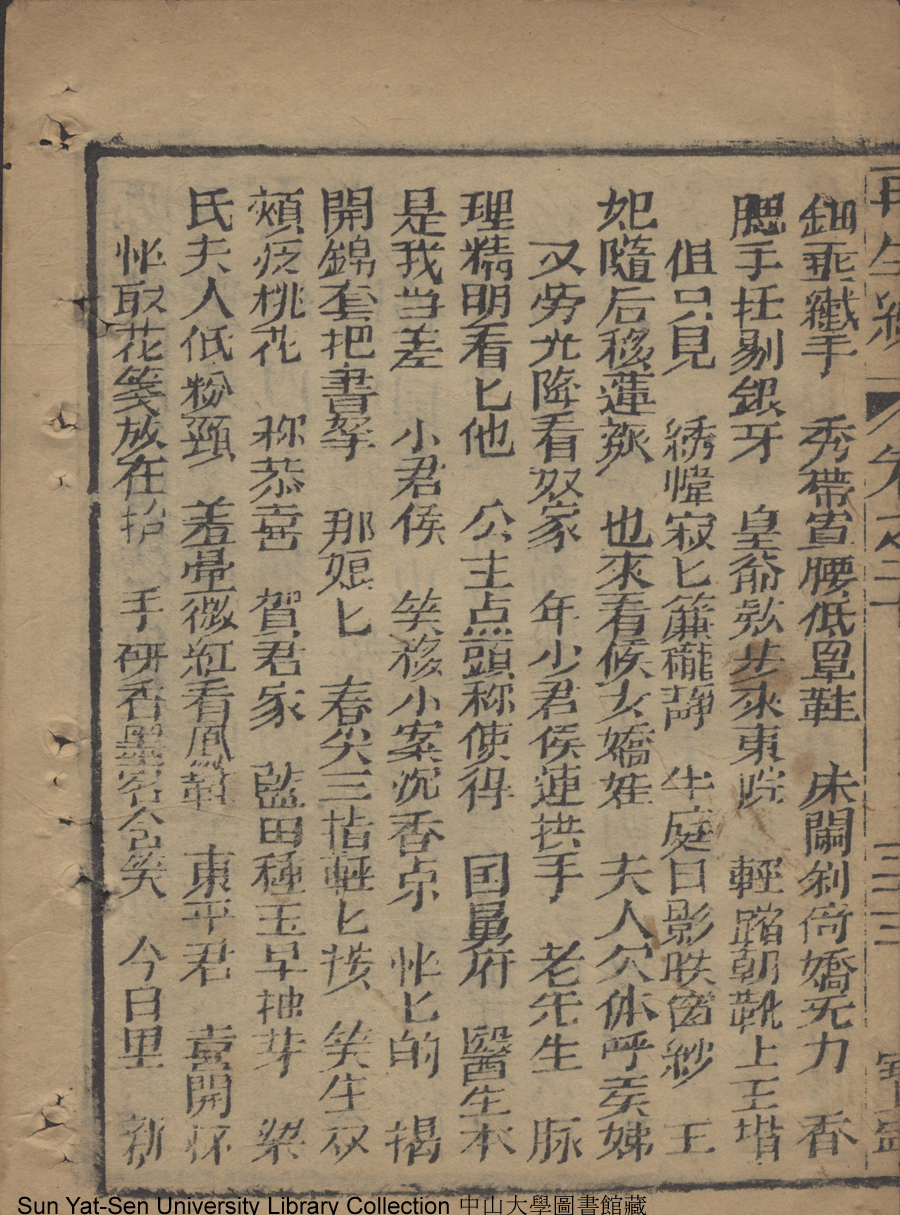 再生緣 卷之二十 三三
鈿乖纖手 秀帶寬腰低罩鞋 床闌斜倚嬌无力 香
腮手托剔銀牙 皇爺欵步來東院 輕踏朝靴上玉堦
但只見 綉幃寂匕簾櫳靜 半庭日影映窗紗 王
妃隨后移蓮步 也來看候女嬌娃 夫人欠体呼矣娣
又劳光降看奴家 年少君侯連拱手 老先生 脉
理精明看匕他 公主点頭称使得 国舅府 醫生本
是我当差 小君侯 笑移小案沉香桌 忙匕的 揭
開錦套把書拏 那娘匕 春尖三指輕匕按 笑生双
頰泛桃花 称恭喜 賀君家 藍田種玉早抽芽 梁
氏夫人低粉頸 羞暈微紅看鳳鞋 東平君 喜開怀
忙取花箋放在 手研香墨密含笑 今日里 新
Sun Yat-Sen University Library Collection 中山大學圖書館藏